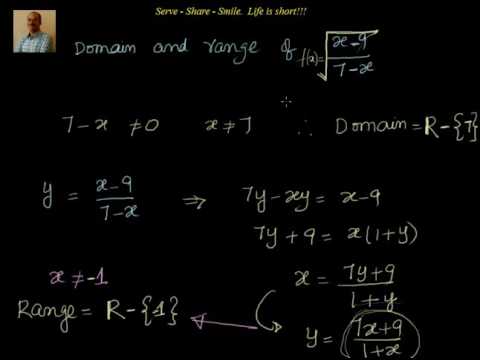 Serve - Share - Smile. Life is short!!!
Domain and range of f(x)=√((x-9)/(7-x))
7-x ≠0 x≠7 ∴ Domain = R-{7}
y = (x-9)/(7-x) ⇒ 7y-xy = x-9
7y+9 = x(1+y)
x = (7y+9)/(1+y)
x ≠ -1
Range = R-{-1}
y = (7x+9)/(1+x)